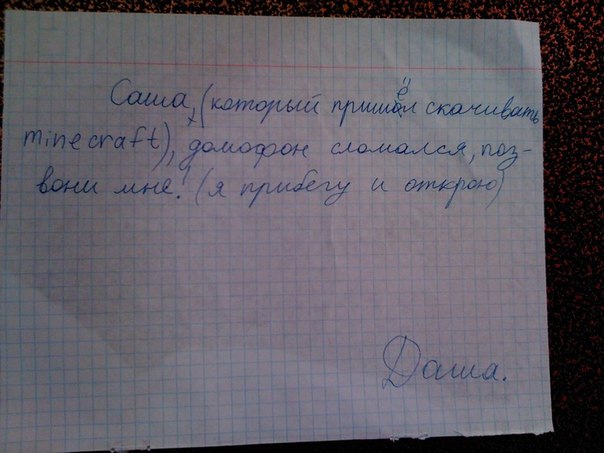 Саша, (который пришёл скачивать
minecraft), домофон сломался, поз-
вони мне! (я прибегу и открою)
Даша.